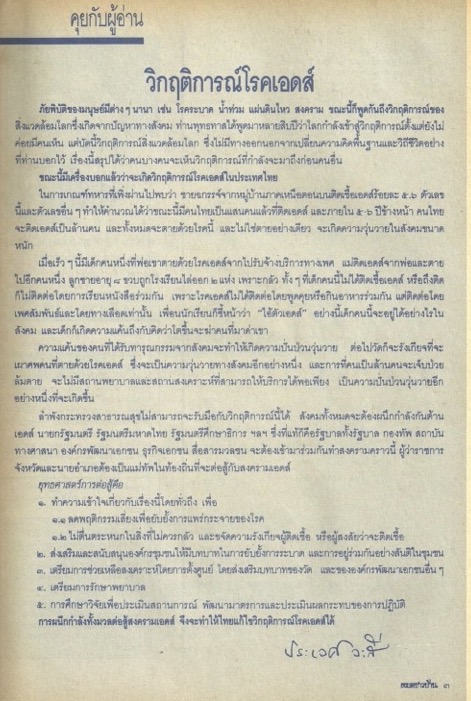 คุยกับผู้อ่าน
วิกฤติการณ์โรคเอดส์
ภัยพิบัติของมนุษย์มีต่าง ๆ นานา เช่น โรคระบาด น้ำท่วม แผ่นดินไหว สงคราม ขณะนี้ก็พูดกันถึงวิกฤติการณ์ของ
สิ่งแวดล้อมโลกซึ่งเกิดจากปัญหาทางสังคม ท่านพุทธทาสได้พูดมาหลายสิบปีว่าโลกกำลังเข้าสู่วิกฤติการณ์ตั้งแต่ยังไม่
ค่อยมีคนเห็น แต่บัดนี้วิกฤติการณ์สิ่งแวดล้อม ซึ่งไม่มีทางออกนอกจากเปลี่ยนความคิดพื้นฐานและวิถีชีวิตอย่าง
ที่ท่านบอกไว้ เรื่องนี้สรุปได้ว่าคนบางคนจะเห็นวิกฤติการณ์ที่กำลังจะมาถึงก่อนคนอื่น
ขณะนี้มีเครื่องบอกแล้วว่าจะเกิดวิกฤติการณ์โรคเอดส์ในประเทศไทย
ในการเกณฑ์ทหารที่เพิ่งผ่านไปพบว่า ชายฉกรรจ์จากหมู่บ้านภาคเหนือตอนบนติดเชื้อเอดส์ร้อยละ ๕.๖ ตัวเลข
นี้และตัวเลขอื่น ๆ ทำให้คำนวณได้ว่าขณะนี้มีคนไทยเป็นแสนคนแล้วที่ติดเอดส์ และภายใน ๕-๖ ปีข้างหน้า คนไทย
จะติดเอดส์เป็นล้านคน และทั้งหมดจะตายด้วยโรคนี้ และไม่ใช่ตายอย่างเดียว จะเกิดความวุ่นวายในสังคมขนาด
หนัก
เมื่อเร็ว ๆ นี้มีเด็กคนหนึ่งที่พ่อเขาตายด้วยโรคเอดส์จากไปรับจ้างบริการทางเพศ แม่ติดเอดส์จากพ่อและตาย
ไปอีกคนหนึ่ง ลูกชายอายุ ๘ ขวบถูกโรงเรียนไล่ออก ๒ แห่ง เพราะกลัว ทั้ง ๆ ที่เด็กคนนี้ไม่ได้ติดเชื้อเอดส์ หรือถึงติด
ก็ไม่ติดต่อโดยการเรียนหนังสือร่วมกัน เพราะโรคเอดส์ไม่ได้ติดต่อโดยพูดคุยหรือกินอาหารร่วมกัน แต่ติดต่อโดย
เพศสัมพันธ์และโดยทางเลือดเท่านั้น เพื่อนนักเรียนก็ชี้หน้าว่า “ไอ้ตัวเอดส์” อย่างนี้เด็กคนนี้จะอยู่ได้อย่างไรใน
สังคม และเด็กก็เกิดความแค้นถึงกับคิดว่าโตขึ้นจะฆ่าคนที่มาด่าเขา
ความแค้นของคนที่ได้รับทารุณกรรมจากสังคมจะทำให้เกิดความปั่นป่วนวุ่นวาย ต่อไปวัดก็จะรังเกียจที่จะ
เผาศพคนที่ตายด้วยโรคเอดส์ ซึ่งจะเป็นความวุ่นวายทางสังคมอีกอย่างหนึ่ง และการที่คนเป็นล้านคนจะเจ็บป่วย
ล้มตาย จะไม่มีสถานพยาบาลและสถานสงเคราะห์ที่สามารถให้บริการได้พอเพียง เป็นความปั่นป่วนวุ่นวายอีก
อย่างหนึ่งที่จะเกิดขึ้น
ลำพังกระทรวงสาธารณสุขไม่สามารถจะรับมือกับวิกฤติการณ์นี้ได้ สังคมทั้งหมดจะต้องผนึกกำลังกันต้าน
เอดส์ นายกรัฐมนตรี รัฐมนตรีมหาดไทย รัฐมนตรีศึกษาธิการ ฯลฯ ซึ่งที่แท้ก็คือรัฐบาลทั้งรัฐบาล กองทัพ สถาบัน
ทางศาสนา องค์กรพัฒนาเอกชน ธุรกิจเอกชน สื่อสารมวลชน จะต้องเข้ามาร่วมกันทำสงครามคราวนี้ ผู้ว่าราชการ
จังหวัดและนายอำเภอต้องเป็นแม่ทัพในท้องถิ่นที่จะต่อสู้กับสงครามเอดส์
ยุทธศาสตร์การต่อสู้คือ
๑. ทำความเข้าใจเกี่ยวกับเรื่องนี้โดยทั่วถึง เพื่อ
๑.๑ ลดพฤติกรรมเสี่ยงเพื่อยับยั้งการแพร่กระจายของโรค
๑.๒ ไม่ตื่นตระหนกในสิ่งที่ไม่ควรกลัว และขจัดความรังเกียจผู้ติดเชื้อ หรือผู้สงสัยว่าจะติดเชื้อ
๒. ส่งเสริมและสนับสนุนองค์กรชุมชนให้มีบทบาทในการยับยั้งการระบาด และการอยู่ร่วมกันอย่างสันติในชุมชน
๓. เตรียมการช่วยเหลือสงเคราะห์โดยการตั้งศูนย์ โดยส่งเสริมบทบาทของวัด และขององค์กรพัฒนาเอกชนอื่น ๆ
๔. เตรียมการรักษาพยาบาล
๕. การศึกษาวิจัยเพื่อประเมินสถานการณ์ พัฒนามาตรการและประเมินผลกระทบของการปฏิบัติ
การผนึกกำลังทั้งมวลต่อสู้สงครามเอดส์ จึงจะทำให้ไทยแก้ไขวิกฤติการณ์โรคเอดส์ได้
ประเวศ วะสี
หมอชาวบ้าน ๓